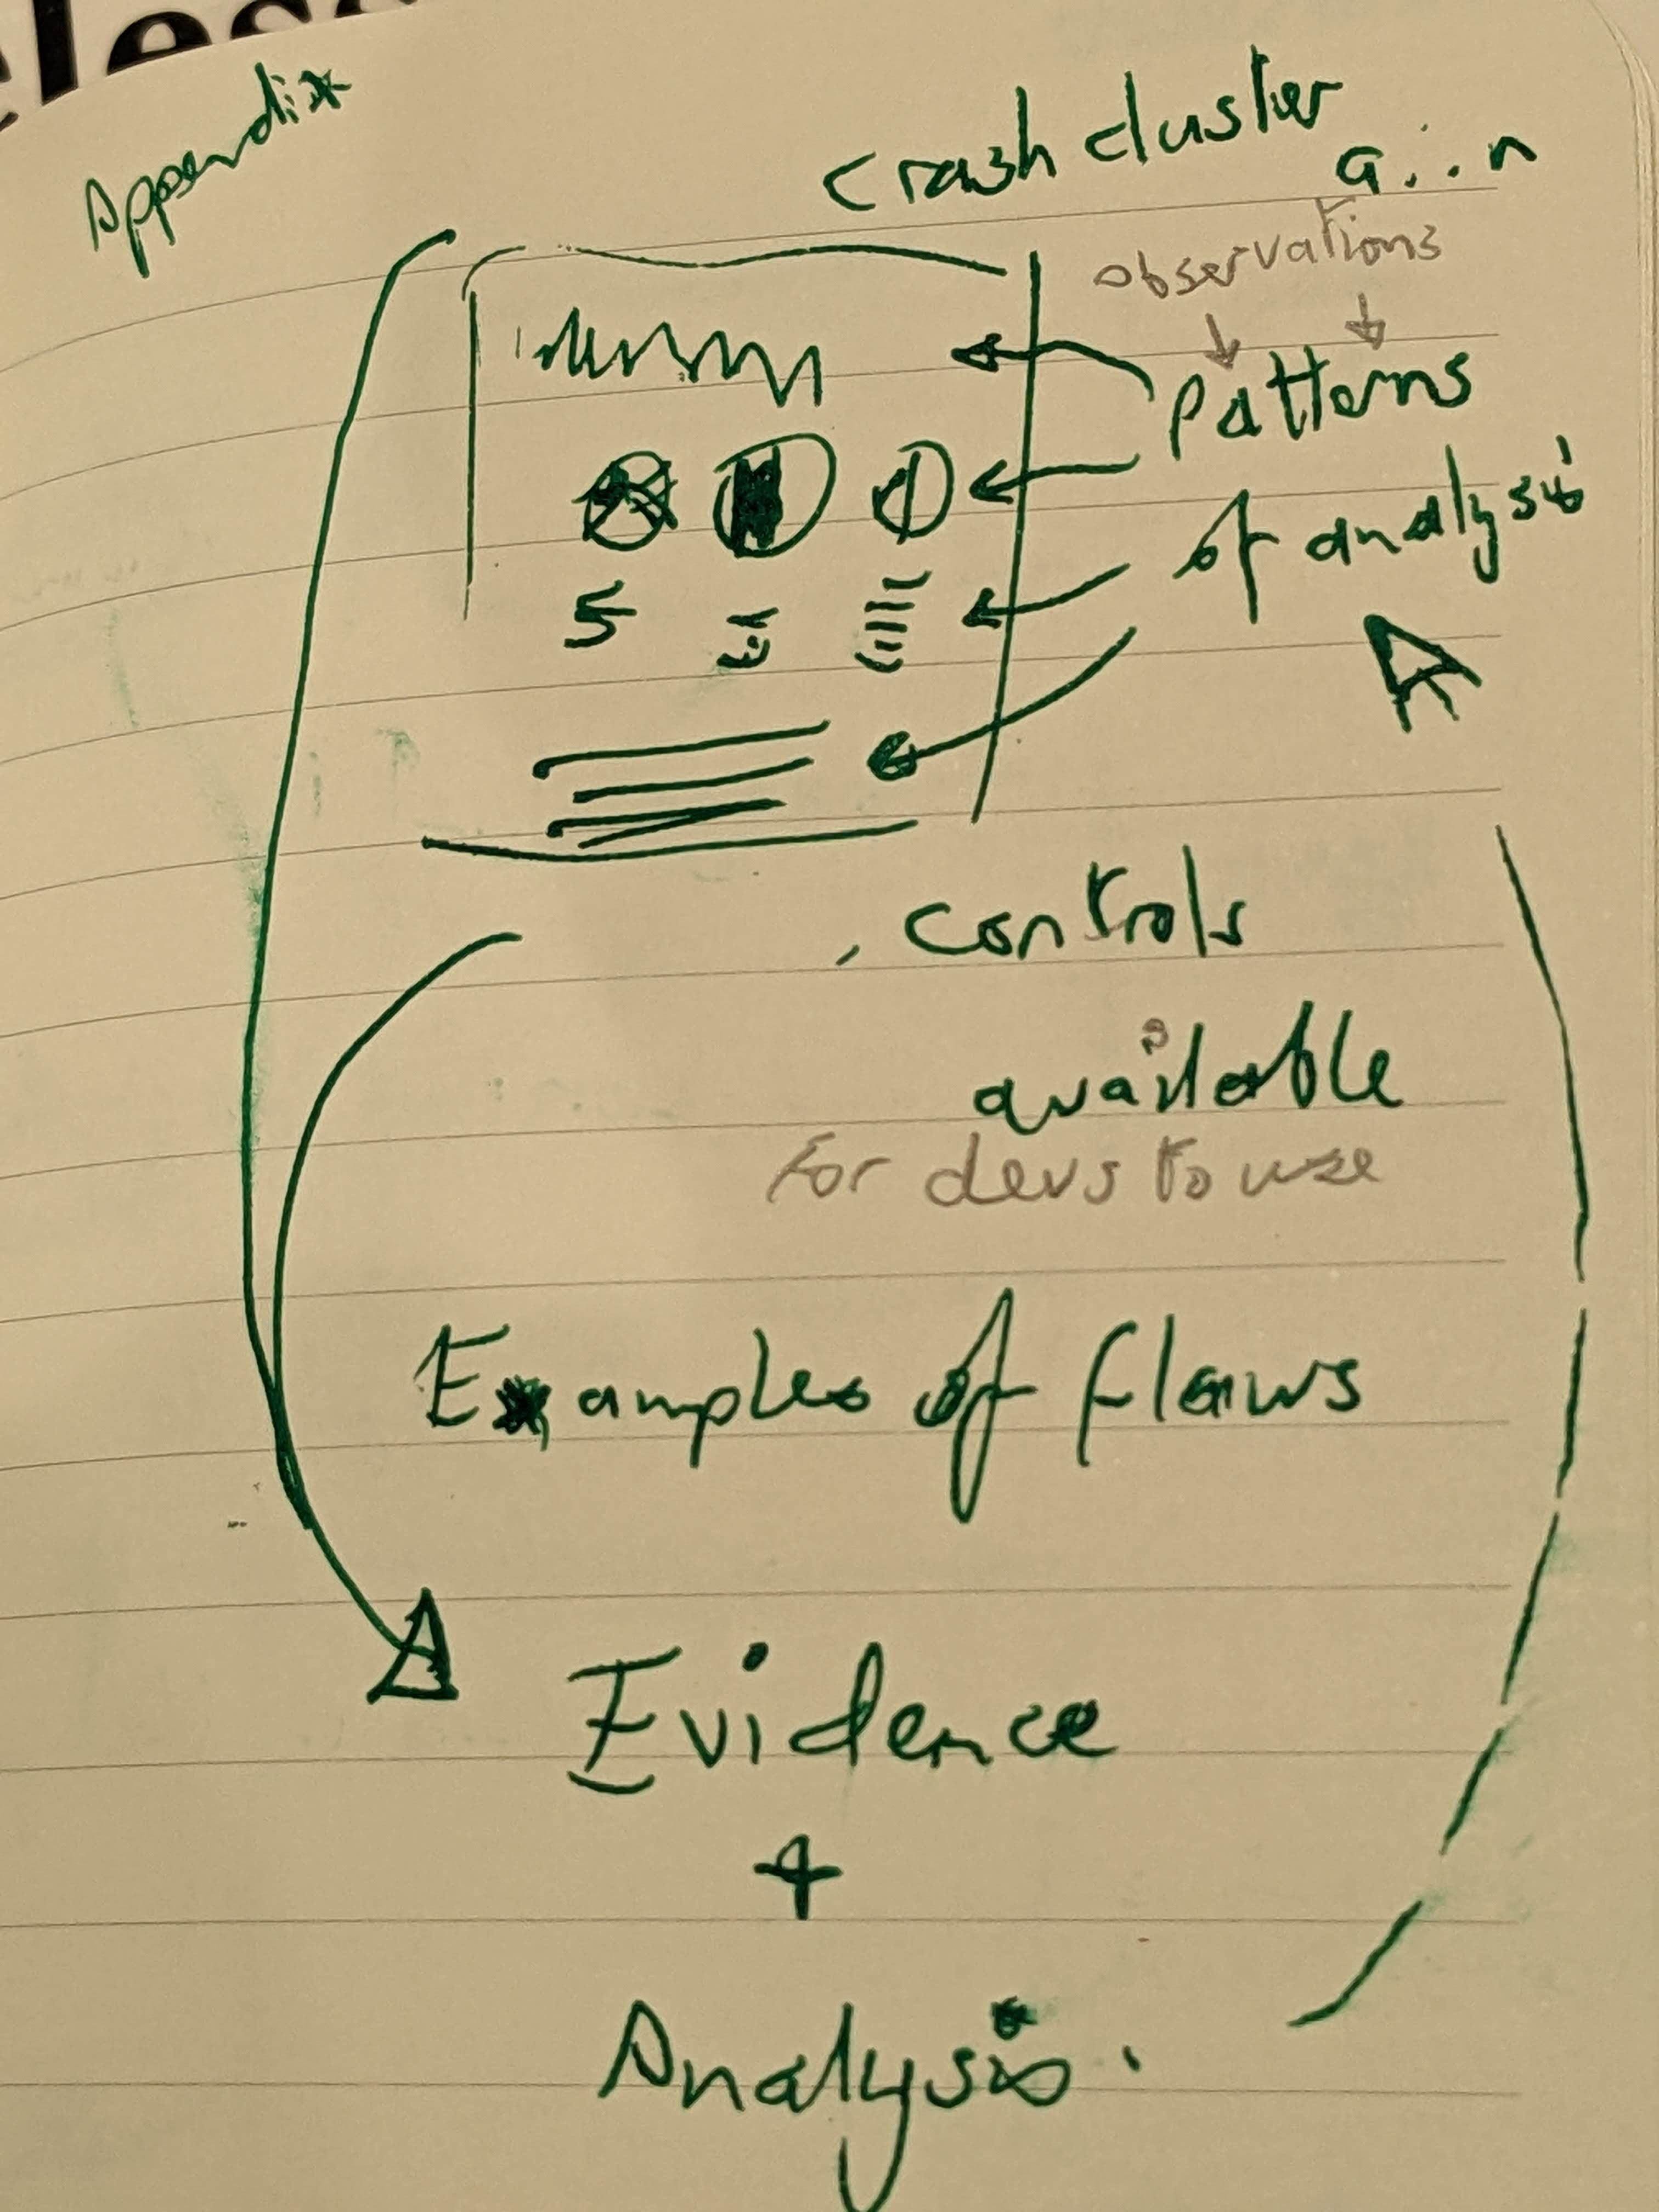 Appendix
crash cluster
a...n
observations
Patterns
of analysis
controls
available
For devs to use
Examples of flaws
Evidence
+
Analysis.